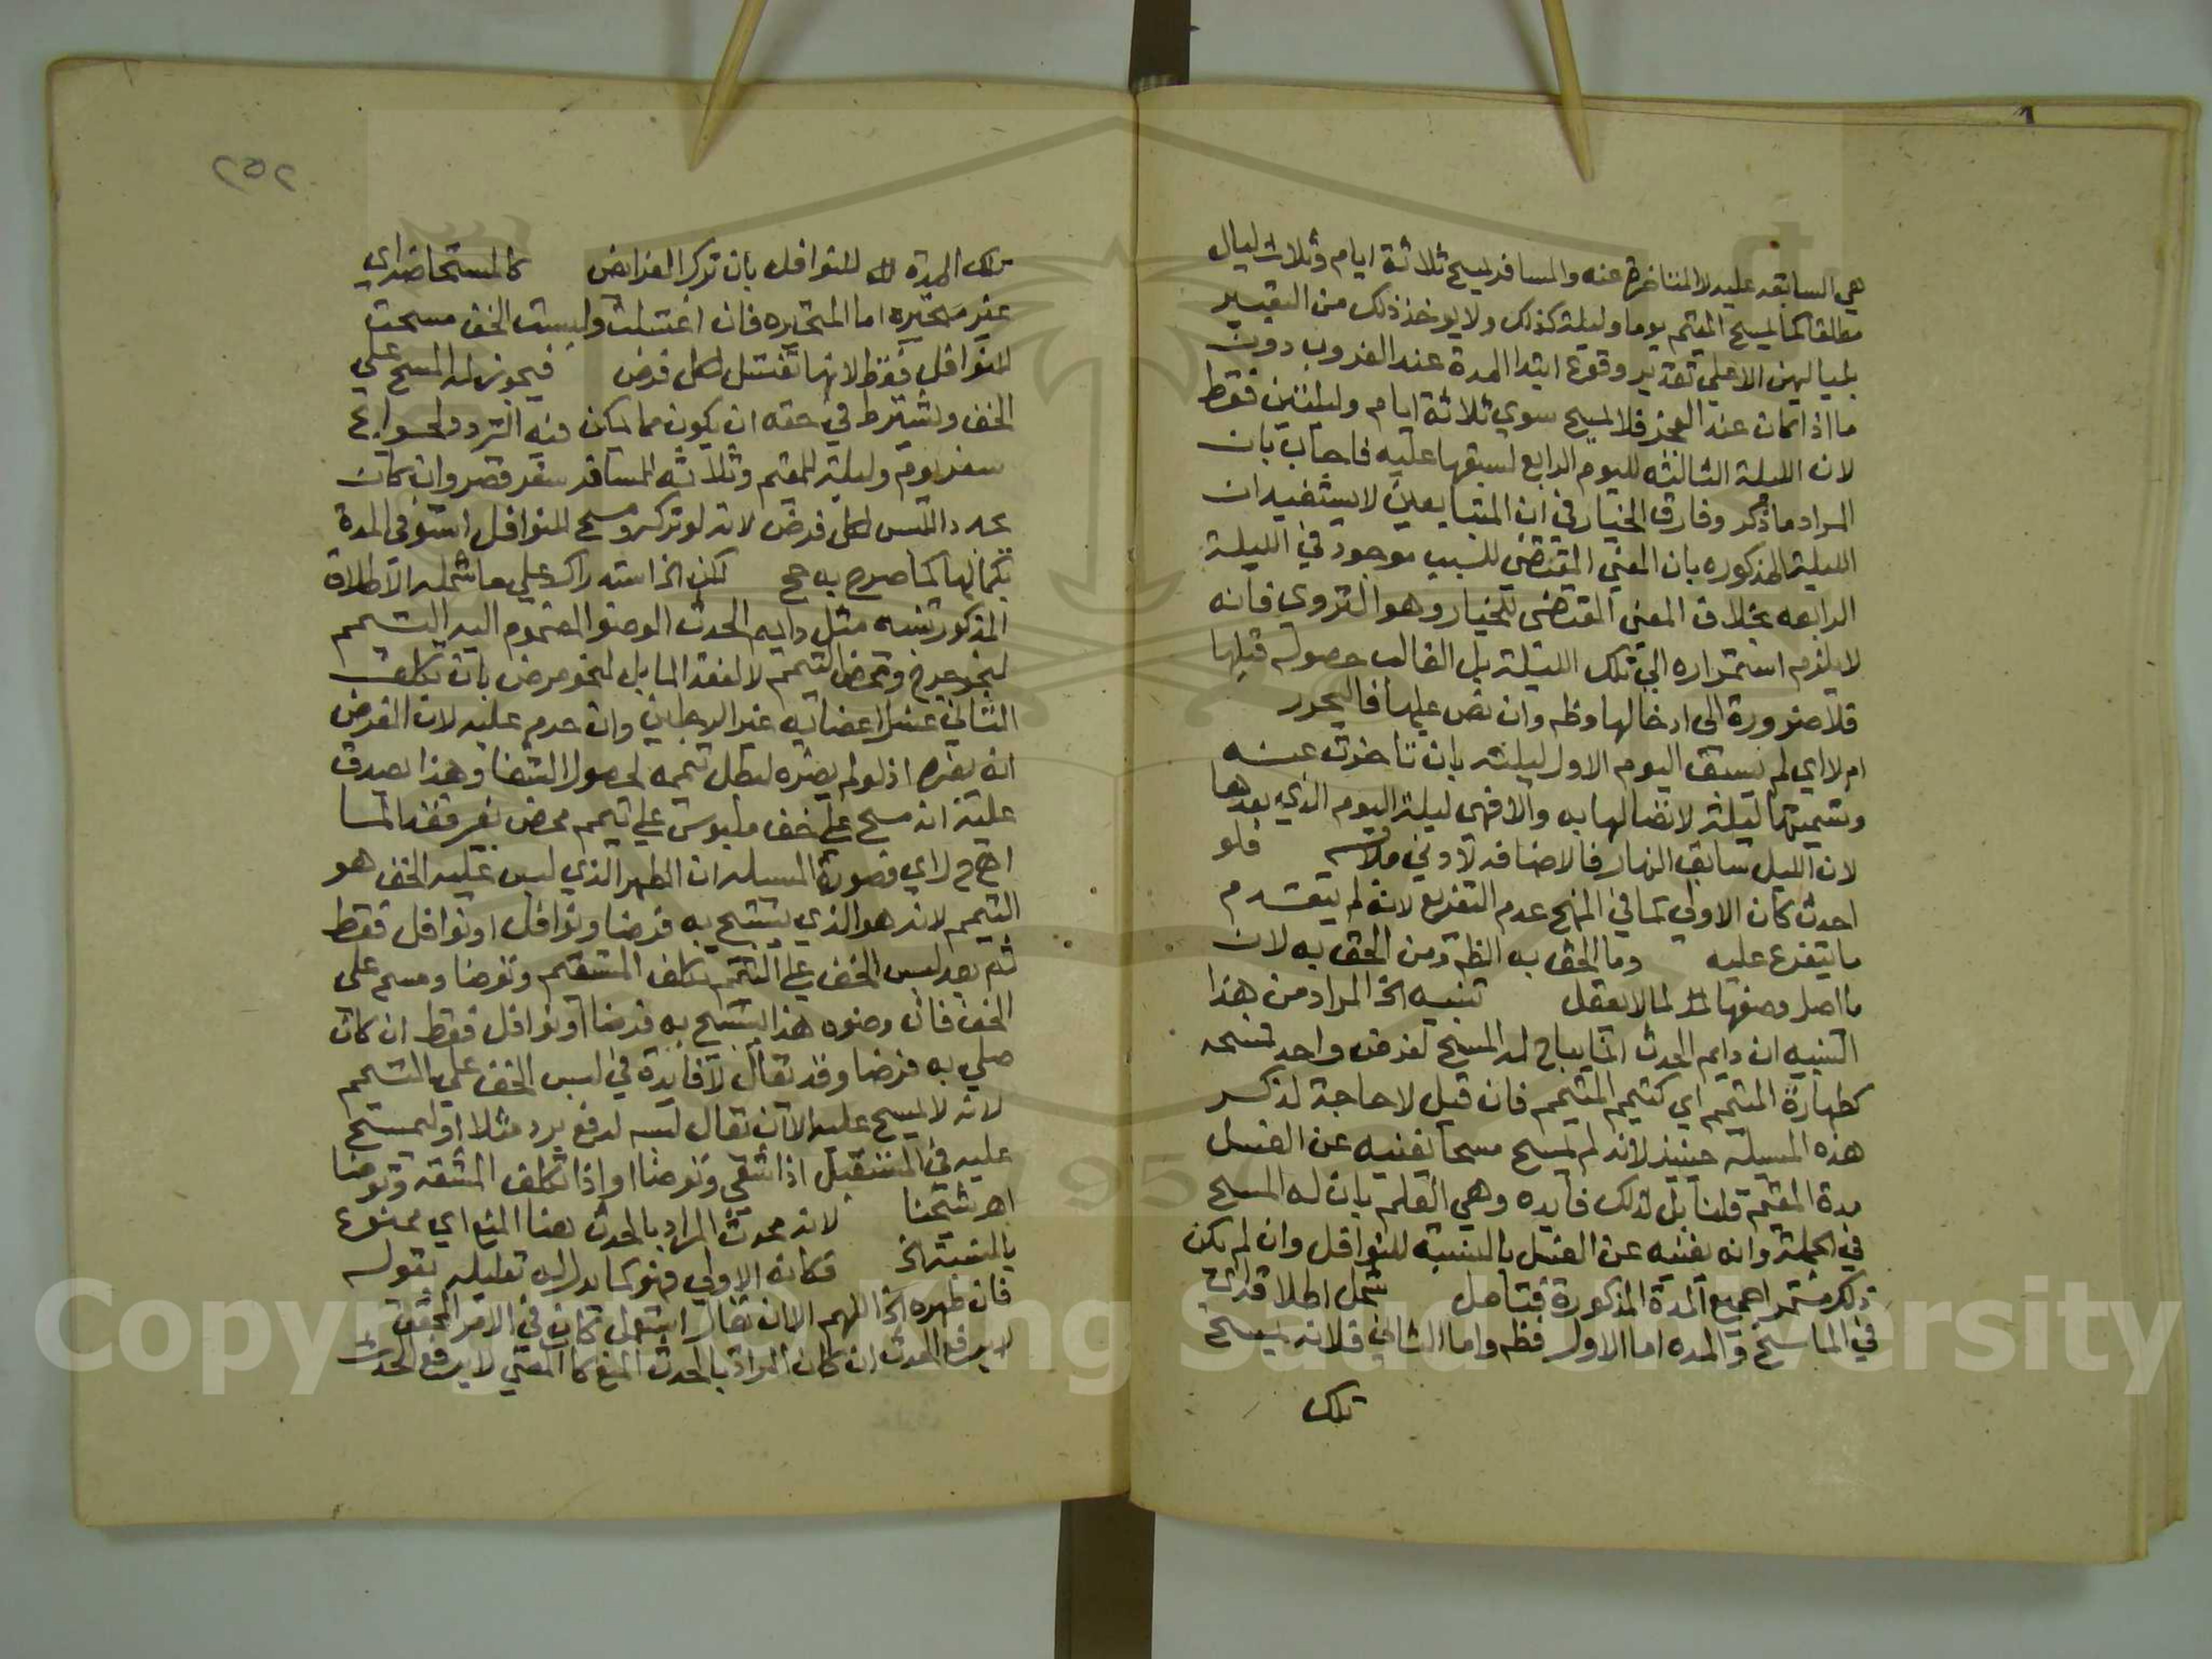 هي السابقه عليه لا المتاخرة عنه والمسافر يمسح ثلاثة ايام وثلاث ليال
مطلقا كما يمسح المقيم يوما وليلة كذلك ولا يوخذ ذلك من التعبير
بلياليهن الا علي تقدير وقوع ابتدا المدة عند الغروب دون
ما اذا كان عند الفجر فلا يمسح سوي ثلاثة ايام وليلتين فقط
لان الليلة الثالثه لليوم الرابع لسبقها عليه فاجاب بان
المراد ما ذكر وفارق الخيار في ان المتبايعين لا يستفيدان
الليلة المذكوره بان المعني المقتضي للسبب موجود في الليلة
الرابعه بخلاف المعني المقتضي للخيار وهو التروي فانه
لا يلزم استمراره الي تلك الليلة بل الغالب حصوله قبلها
فلا ضرورة الى ادخالها وظه وان نص عليها فاليحرر
ام لا اي لم يسبق اليوم الاول ليلته بان تاخرت عنه
وتسميتها ليلته لاتصالها به والا فهي ليلة اليوم الذي بعدها
لان الليل سابق النهار فالاضافه لادني ملابسه فلو
احدث كان الاولي كما في المنهج عدم التفريع لانه لم يتقدم
ما يتفرع عليه وما الحق به انظر من الحق به لان
ما اصل وصفها لما لا يعقل تنبيه الخ المراد من هذا
التنبيه ان دايم الحدث انما يباح له المسح لفرض واحد لمسحه
كطهارة المتيمم اي كتيمم المتيمم فان قيل لا حاجة لذكر
هذه المسيلة حينيذ لانه لم يمسح مسحا يغنيه عن الغسل
مدة المقيم قلنا بل لذلك فايده وهي العلم بان له المسح
في الجملة وانه يغنيه عن الغسل بالنسبة للنوافل وان لم يكن
ذلك مستمرا جميع المدة المذكورة فتامل شمل اطلاقه اي
في الماسح والمده اما الاول فظه واما الثاني فلانه يمسح
تلك
٢٥٢
تلك المدة للنوافل بان ترك الفرايض كالمستحاضه اي
غير متحيره اما المتحيره فان اغتسلت ولبست الخف مسحت
للنوافل فقط لانها تغتسل لكل فرض فيجوز له المسح علي
الخف ويشترط في حقه ان يكون مما يمكن فيه التردد لحوايج
سفر يوم وليلة للمقيم وثلاثه للمسافر سفر قصر وان كان
يجدد اللبس لكل فرض لانه لو تركه ومسح للنوافل استوفى المدة
بكمالها كما صرح به حج لكن الخ استدراك علي ما شمله الاطلاق
المذكور تنبيه مثل دايم الحدث الوضو المضموم اليه التيمم
لنحو جرح ومحض التيمم لا لفقد الما بل لنحو مرض بان تكلف
الثاني غسل اعضايه غير الرجلين وان حرم عليه لان الفرض
انه يضره اذ لو لم يضره لبطل تيممه لحصول الشفا وهذا يصدق
عليه انه مسح علي خف ملبوس علي تيمم محض لغير فقد الما
اهـ م ر اي فصورة المسيله ان الطهر الذي لبس عليه الخف هو
التيمم لانه هو الذي يستبيح به فرضا ونوافل او نوافل فقط
ثم بعد لبس الخف علي التيمم تكلف المشقه وتوضا ومسح علي
الخف فان وضوه هذا يستبيح به فرضا او نوافل فقط ان كان
صلي به فرضا وقد يقال لا فايدة في لبس الخف علي التيمم
لانه لا يمسح عليه الا ان يقال لبسه لدفع برد مثلا او ليمسح
عليه في المستقبل اذا شفي وتوضا او اذا تكلف المشقه وتوضا
اهـ شيخنا لانه محدث المراد بالحدث هنا المنع اي ممنوع
بالنسبة الخ فكانه الاولي فهو كما يدل له تعليله بقوله
فان طهره الخ اللهم الا ان يقال استعمل كان في الامر المحقق
لا يرفع الحدث ان كان المراد بالحدث المنع كالمعني لا يرفع الحدث